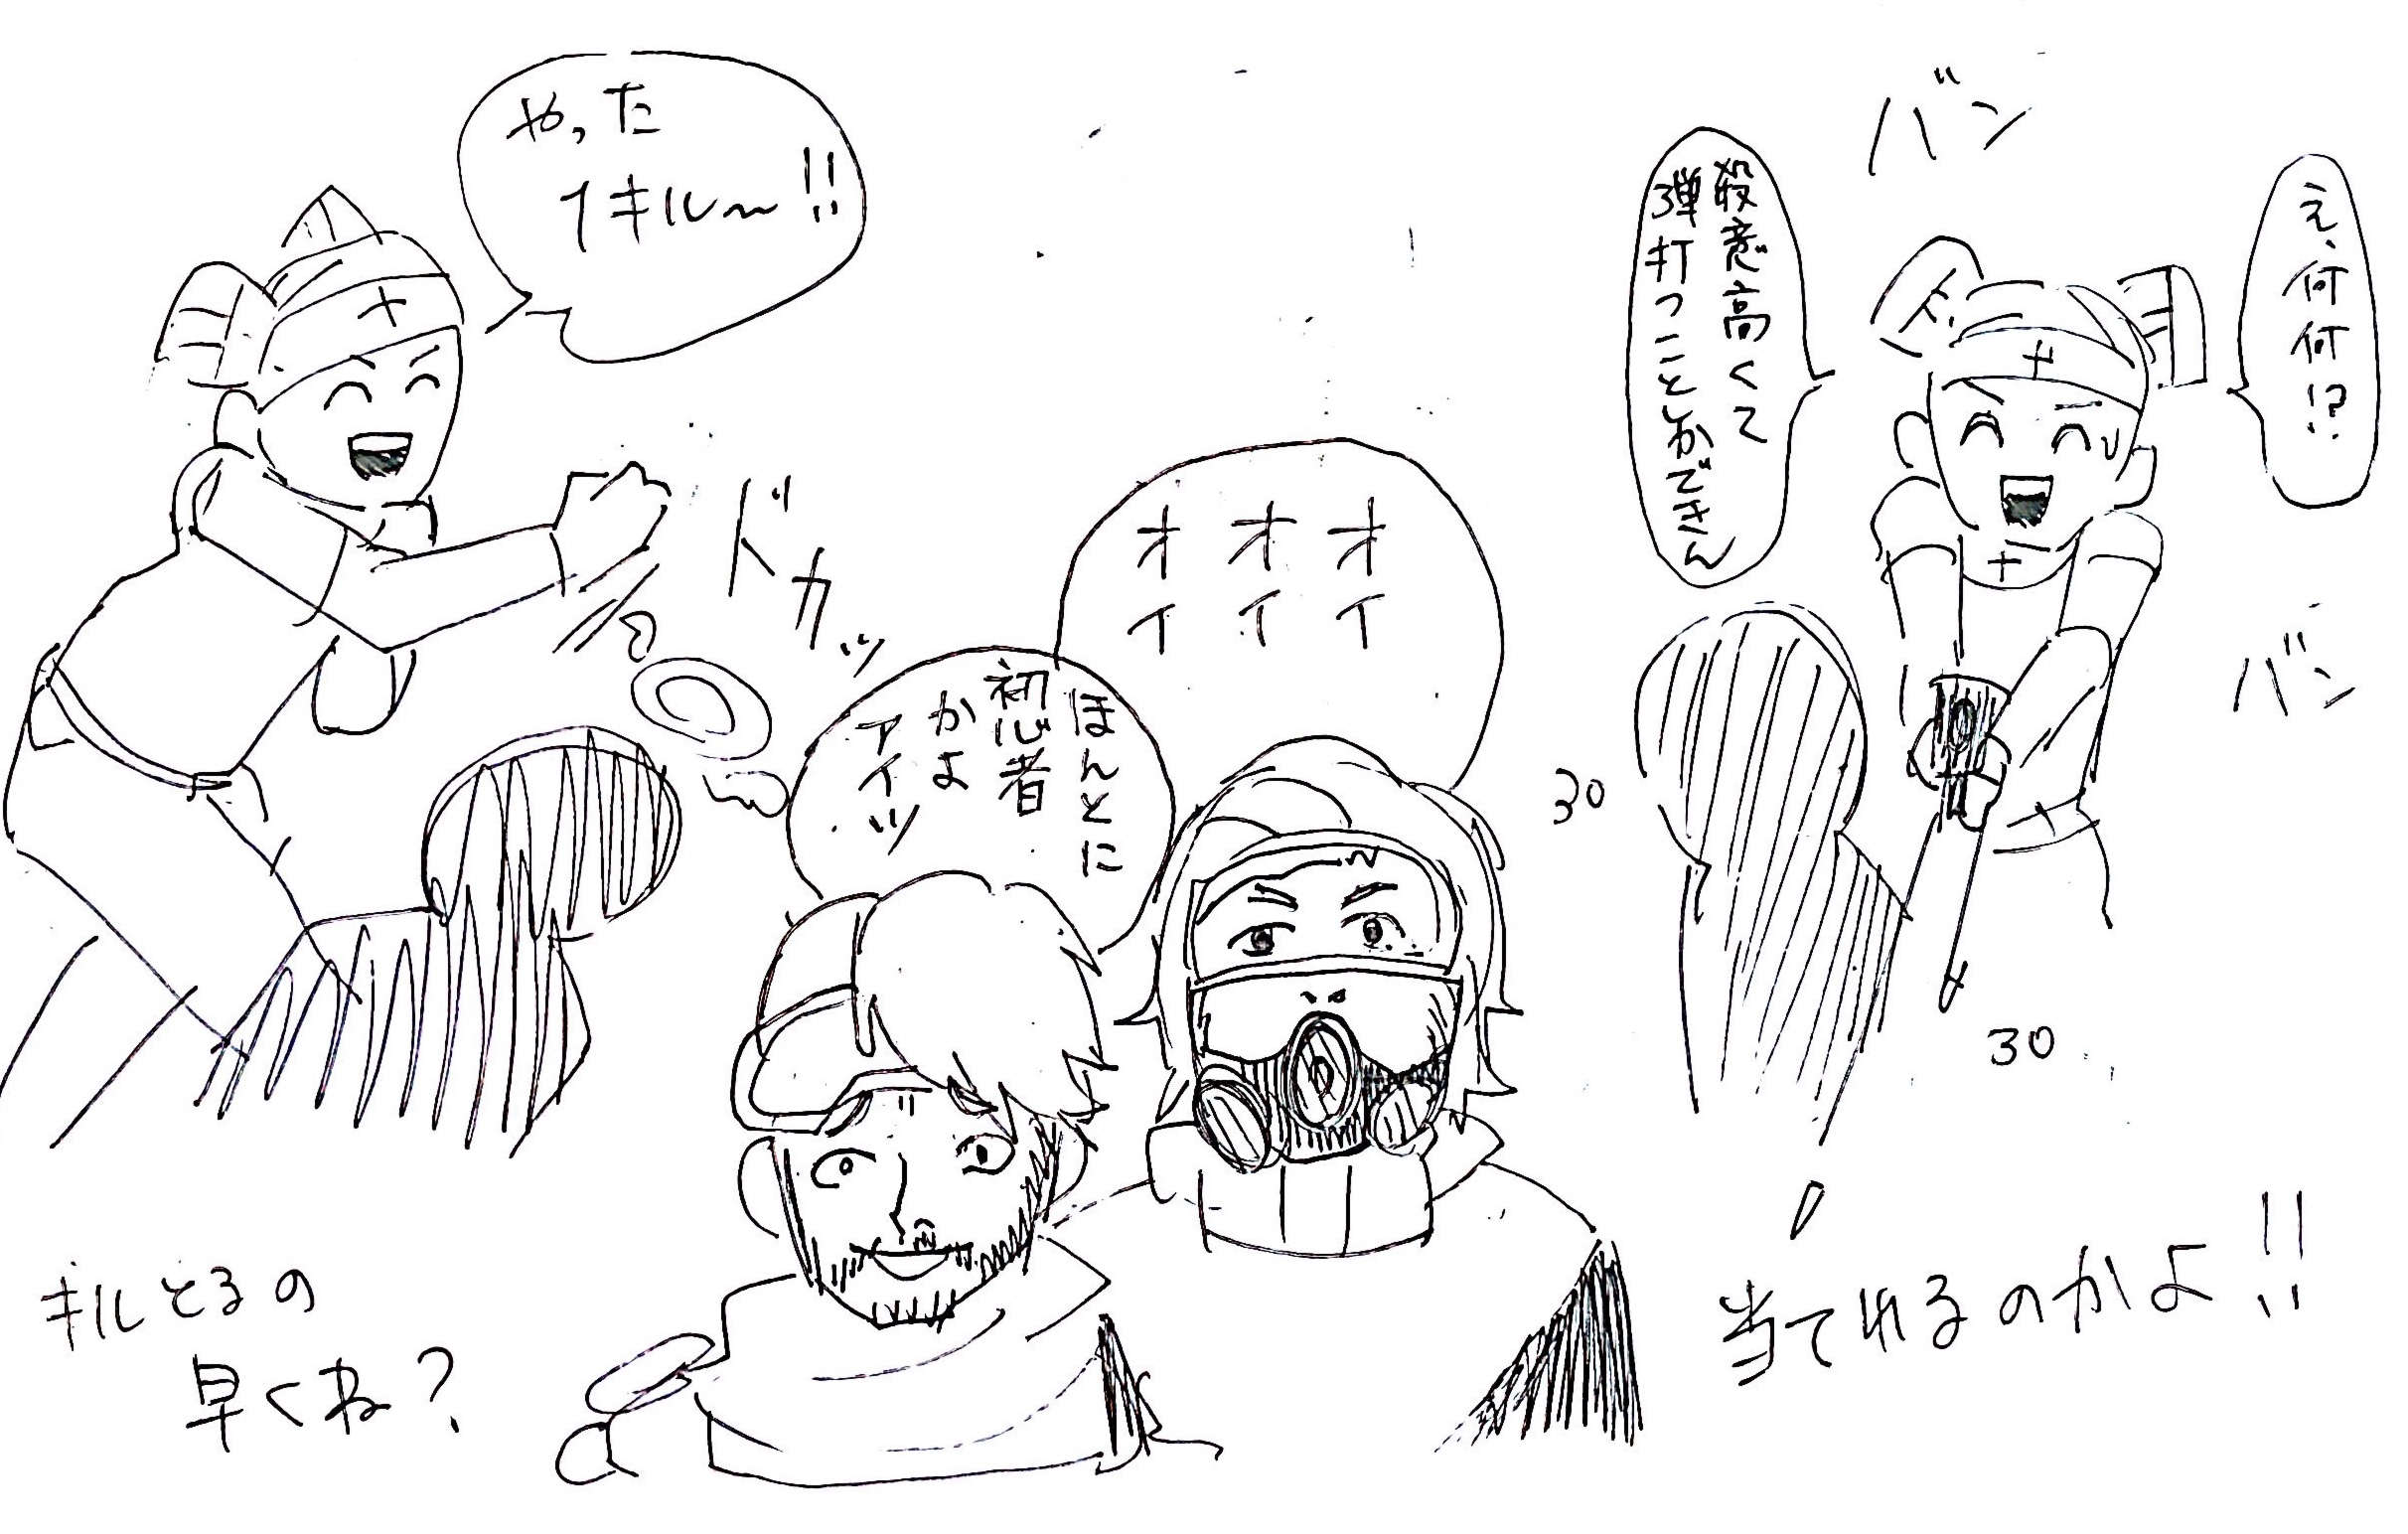 やった
1キル〜!!
ドカッ
キルとるの
早くね?
オイ
オイ
オイ
ほんとに
初心者
かよ
アイツ
バン
え、何何!?
殺意高くて
弾打つことしかできん
バン
30
30
当てれるのかよ!!